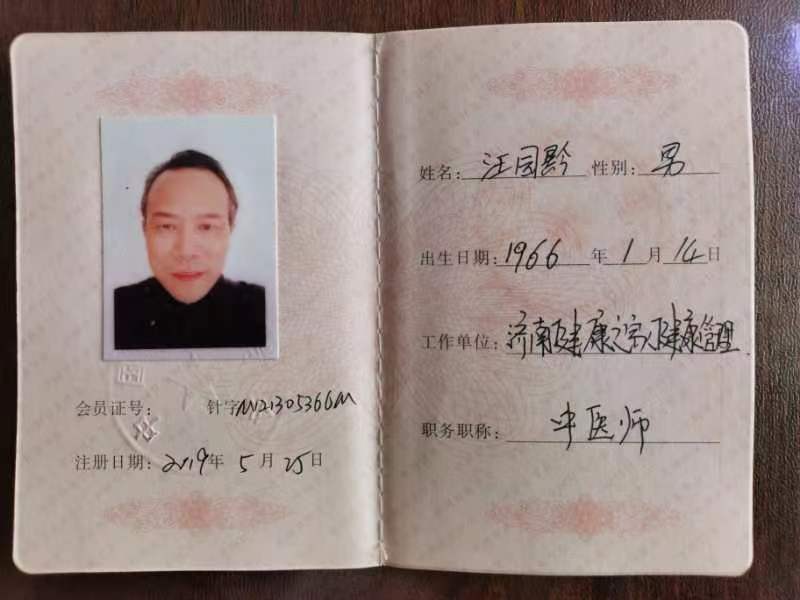 会员证号： 针字M21305366M
注册日期：2019年5月25日
姓名：汪国黔 性别：男
出生日期：1966年1月14日
工作单位：济南健康之家健康管理
职务职称：中医师